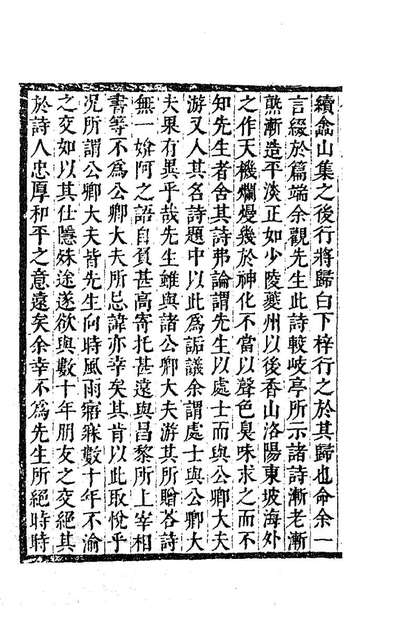 續嵞山集之後行將歸白下梓行之於其歸也命余一
言綴於篇端余觀先生此詩較岐亭所示諸詩漸老漸
熟漸造平淡正如少陵夔州以後香山洛陽東坡海外
之作天機爛熳幾於神化不當以聲色臭味求之而不
知先生者舍其詩弗論謂先生以處士而與公卿大夫
游又入其名詩題中以此為詬議余謂處士與公卿大
夫果有異乎哉先生雖與諸公卿大夫游其所贈荅詩
無一媕阿之語自負甚高寄托甚遠與昌黎所上宰相
書等不為公卿大夫所忌諱亦幸矣其肯以此取悅乎
況所謂公卿大夫皆先生向時風雨寤寐數十年不渝
之交如以其仕隱殊途遂欲與數十年朋友之交絕其
於詩人忠厚和平之意遠矣余幸不為先生所絕時時